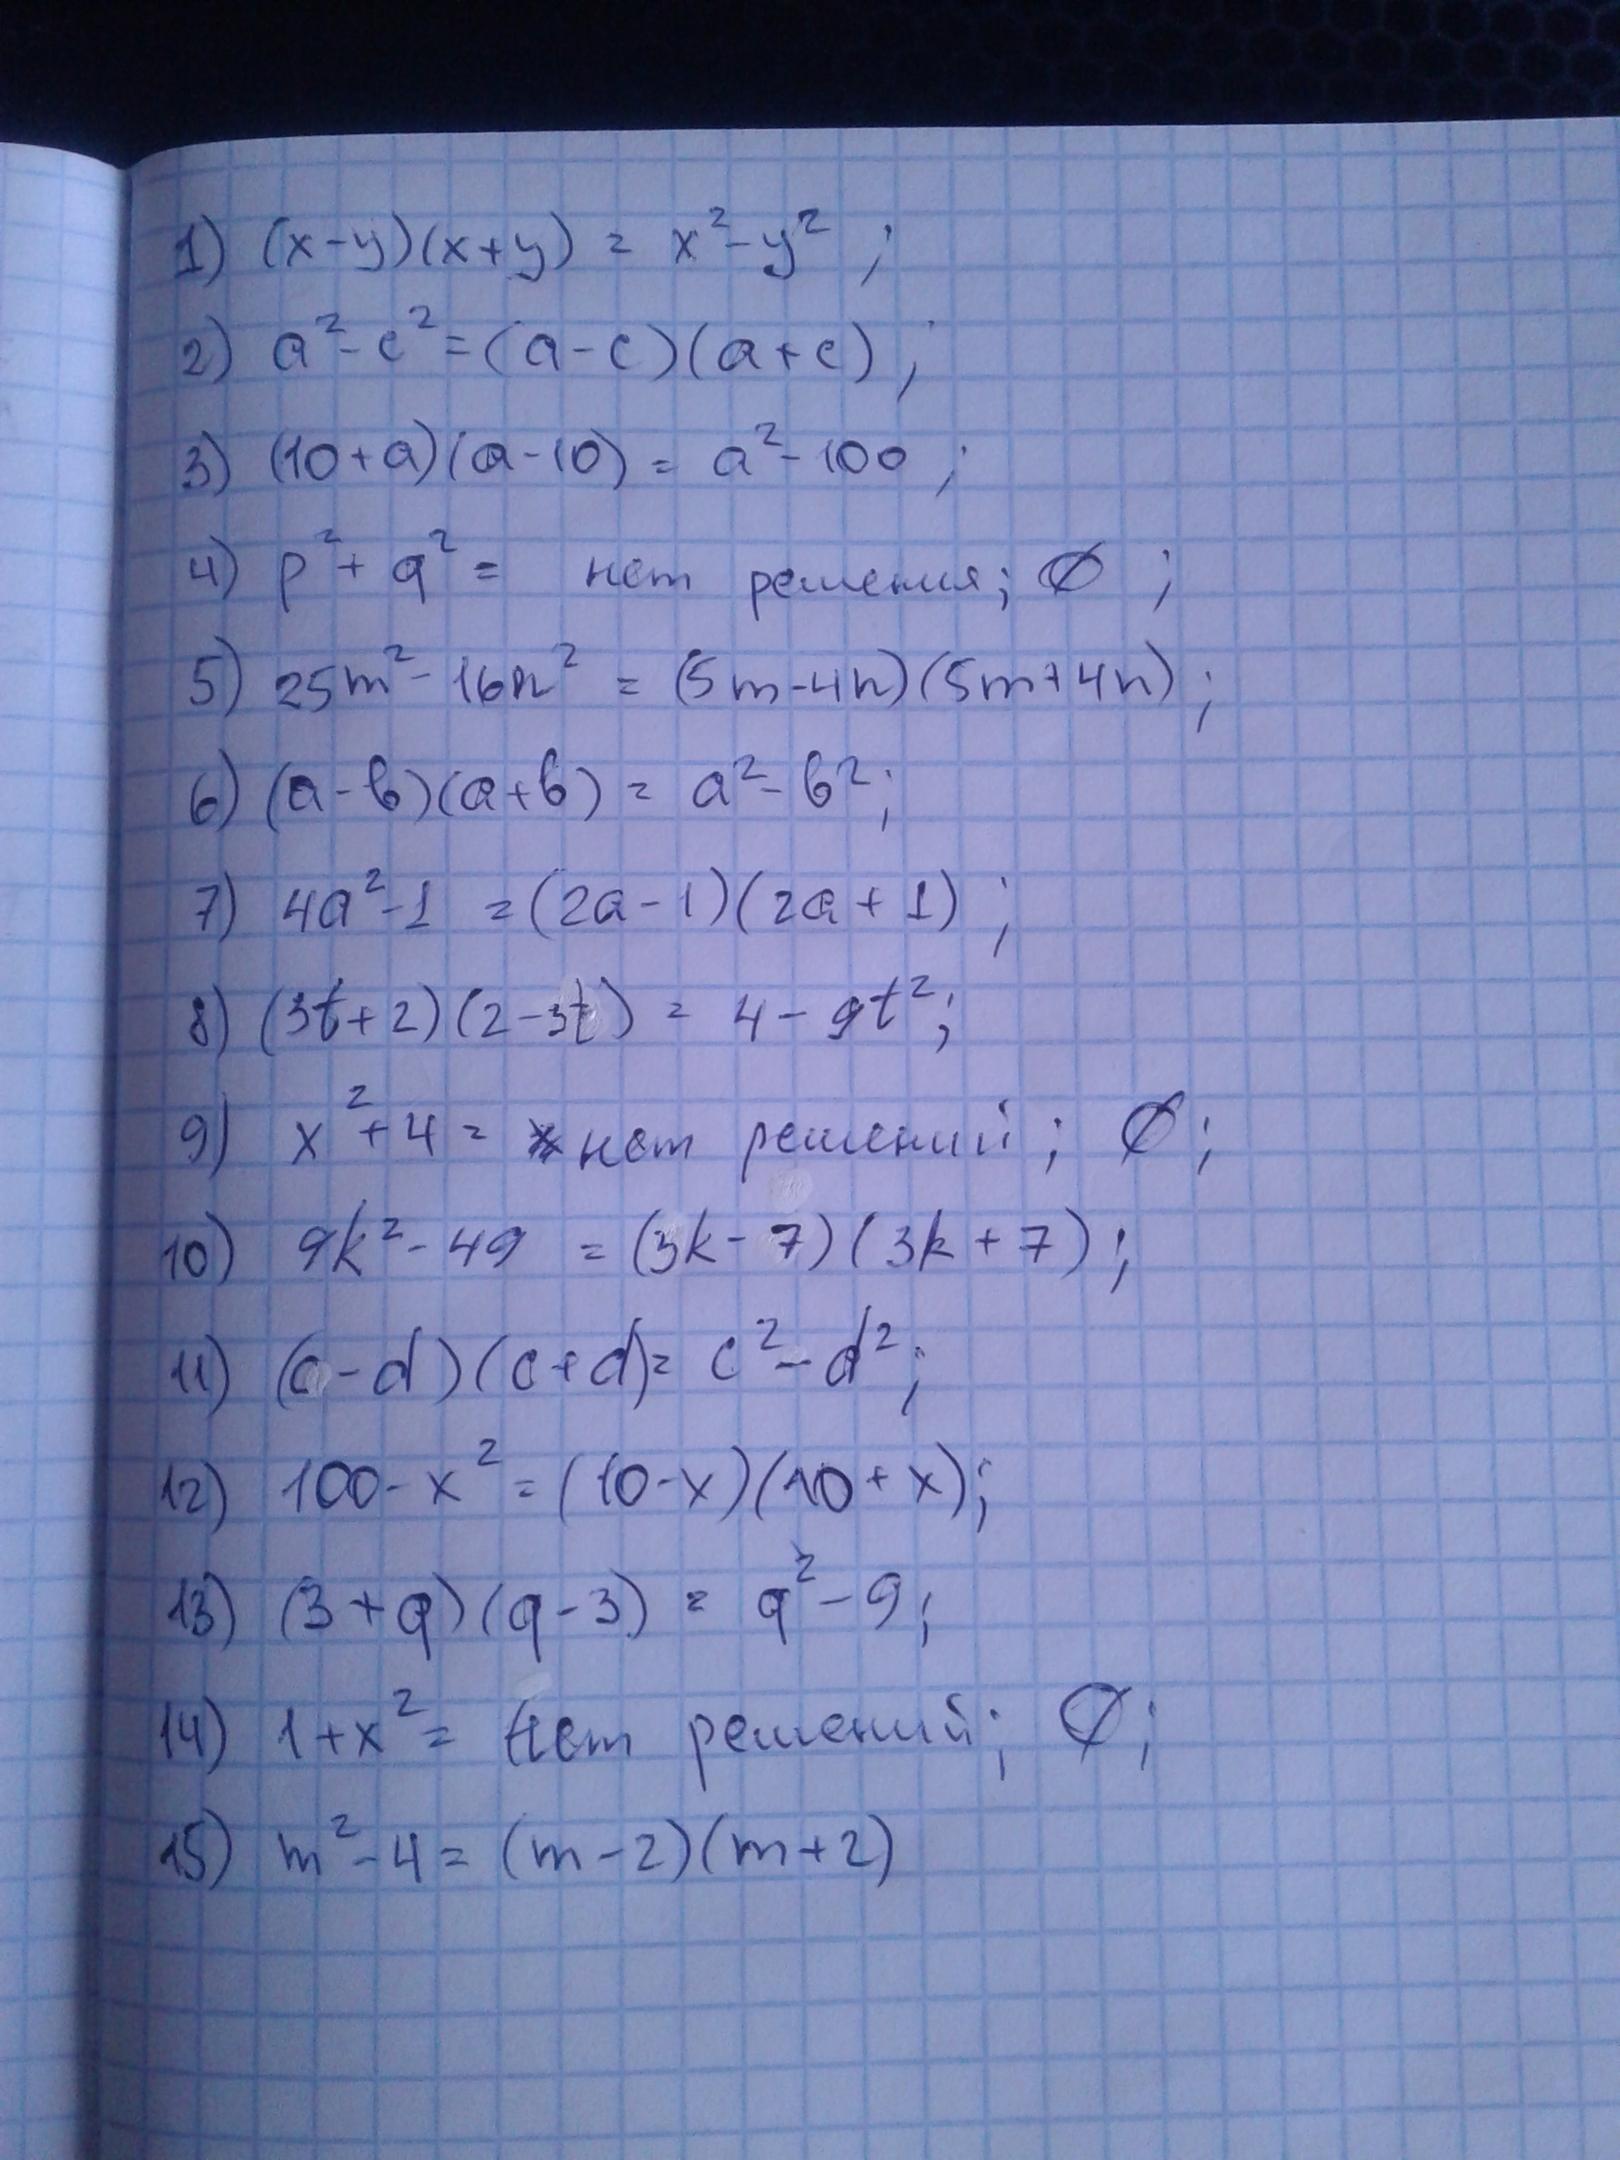 1) (x-y)(x+y) = x²-y² ;
2) a²-c² = (a-c)(a+c) ;
3) (10+a)(a-10) = a²-100 ;
4) p²+q² = нет решения; Ø ;
5) 25m²-16n² = (5m-4n)(5m+4n) ;
6) (a-b)(a+b) = a²-b²;
7) 4a²-1 = (2a-1)(2a+1) ;
8) (3t+2)(2-3t) = 4-9t²;
9) x²+4 = нет решений ; Ø;
10) 9k²-49 = (3k-7)(3k+7) ;
11) (c-d)(c+d)= c²-d²;
12) 100-x² = (10-x)(10+x);
13) (3+q)(q-3) = q²-9;
14) 1+x² = нет решений; Ø;
15) m²-4 = (m-2)(m+2)